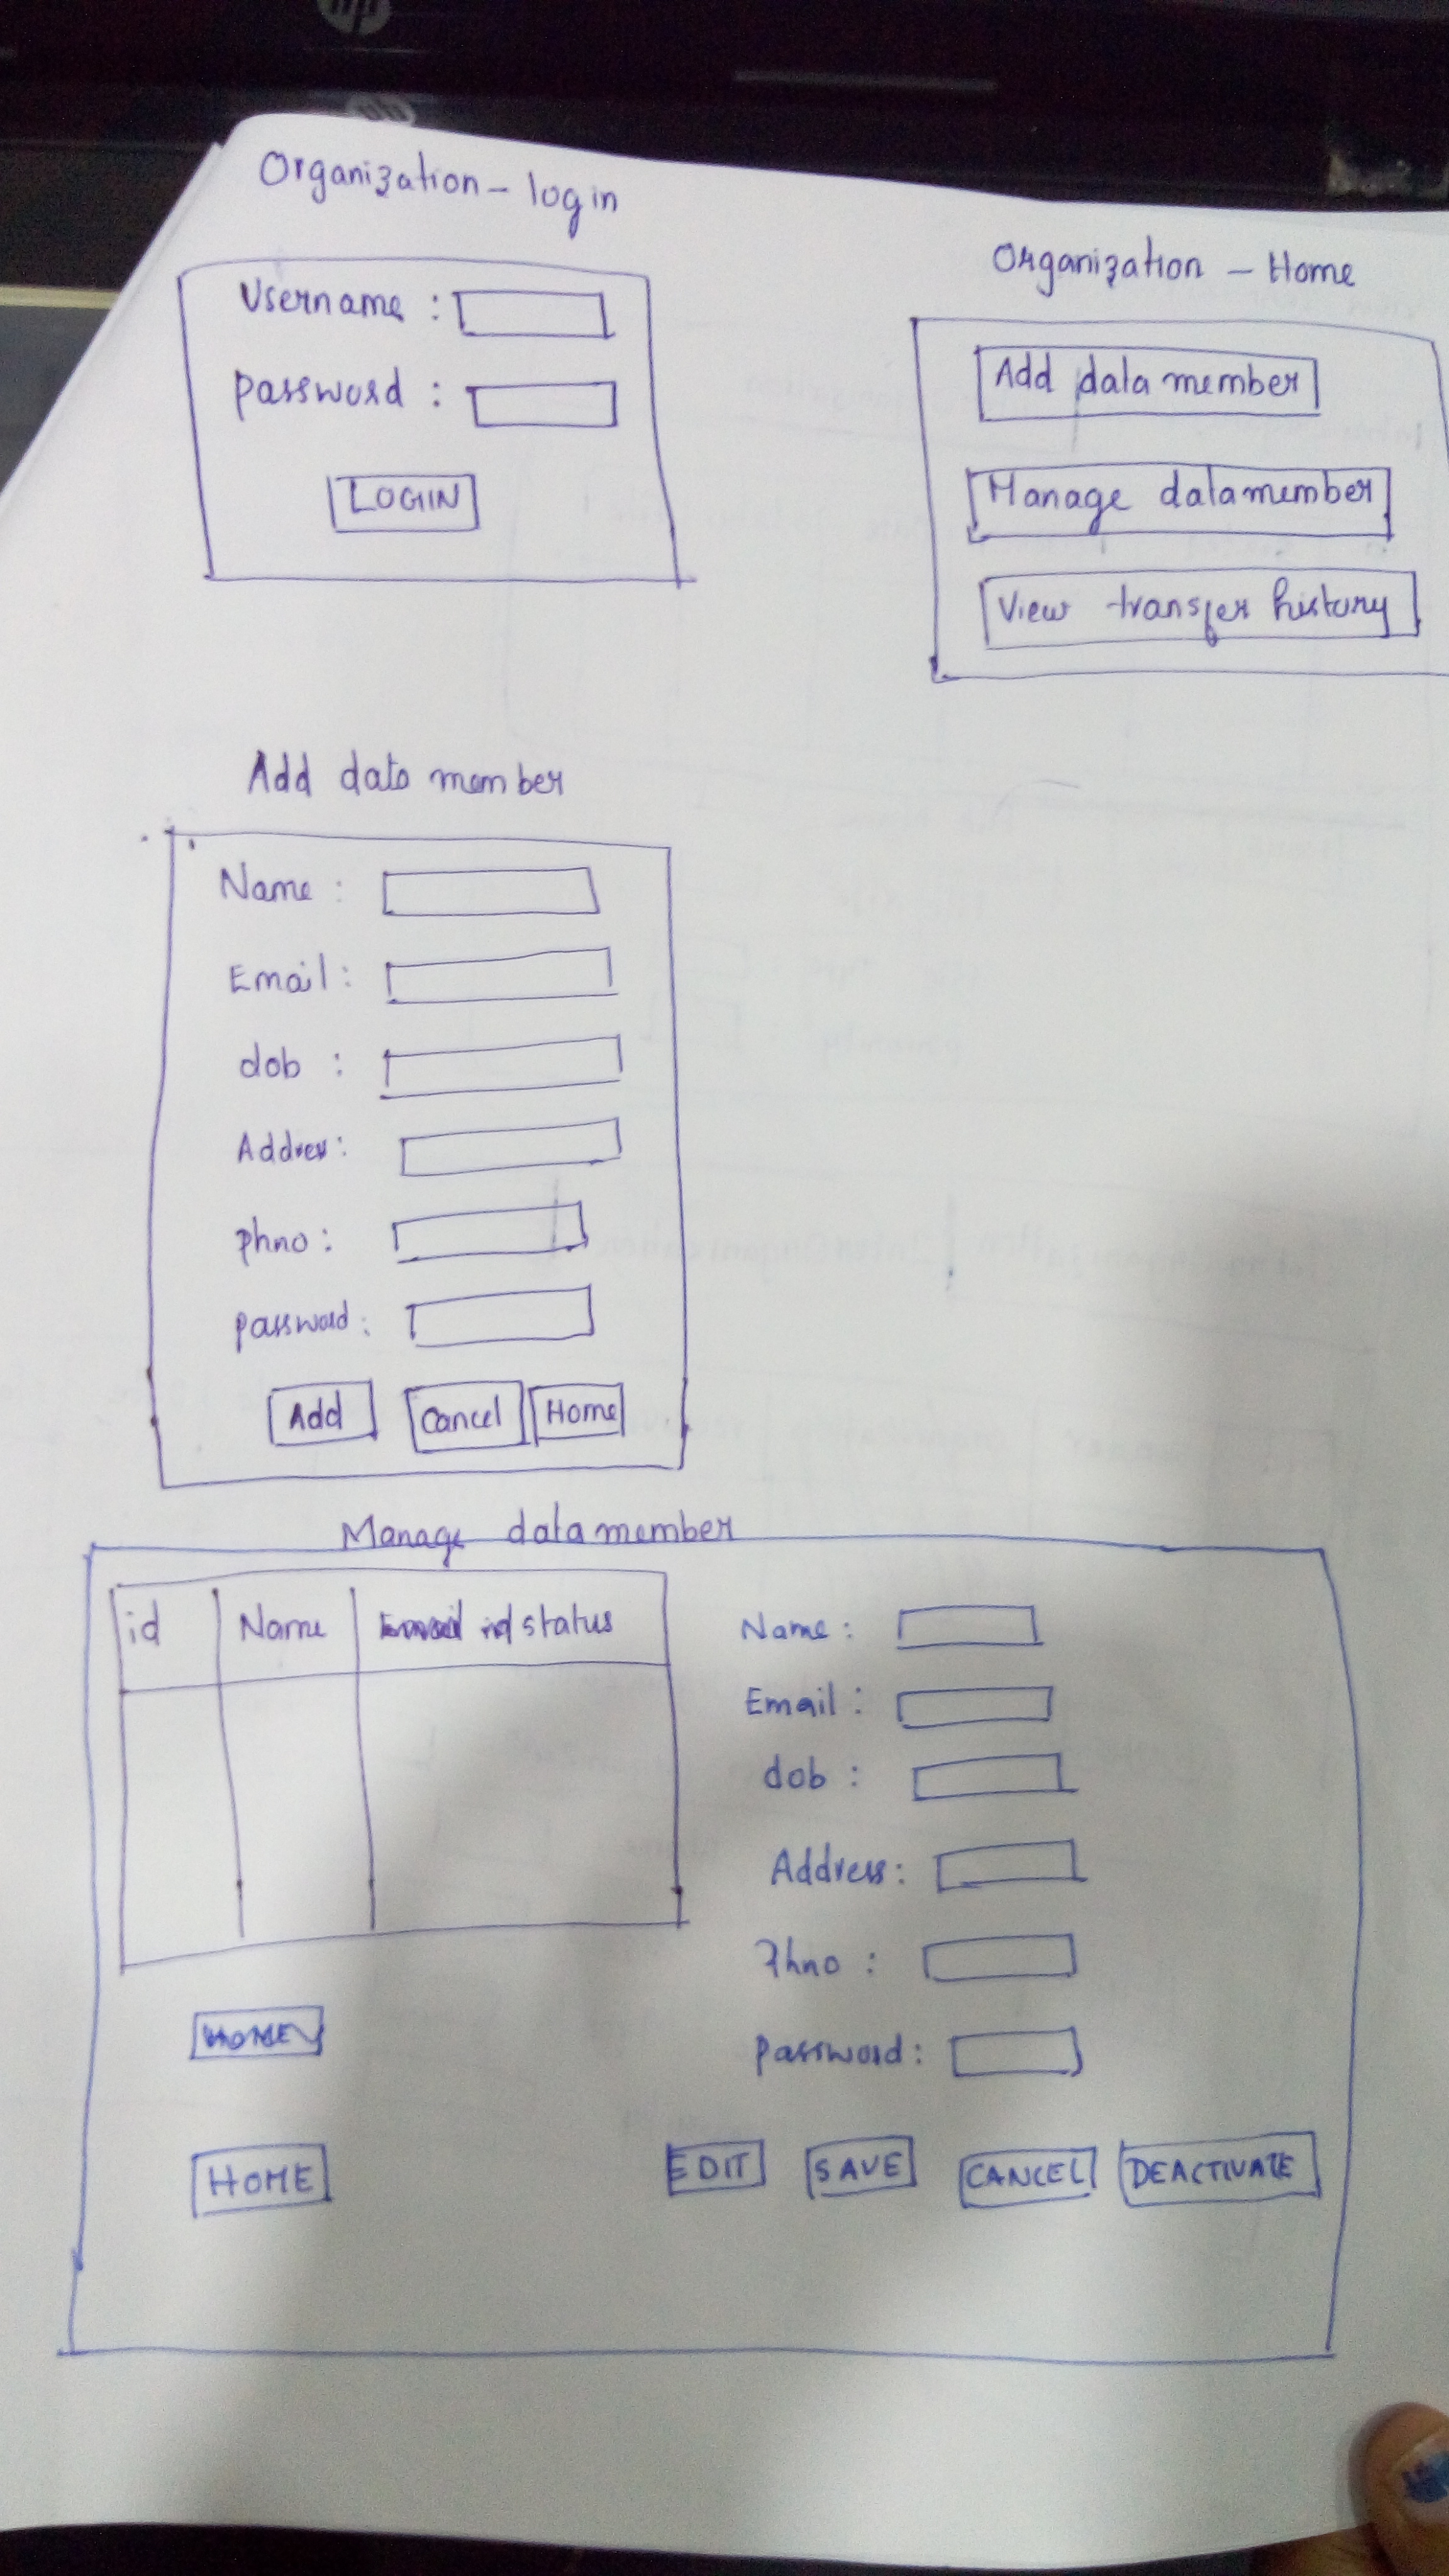 hp
Organization - login
Username :
password :
LOGIN
Organization - Home
Add data member
Manage datamember
View transfer history
Add data member
Name :
Email :
dob :
Addres :
phno :
password :
Add Cancel Home
Manage datamember
id Name status
Name :
Email :
dob :
Address :
Phno :
password :
HOME
HOME EDIT SAVE CANCEL DEACTIVATE